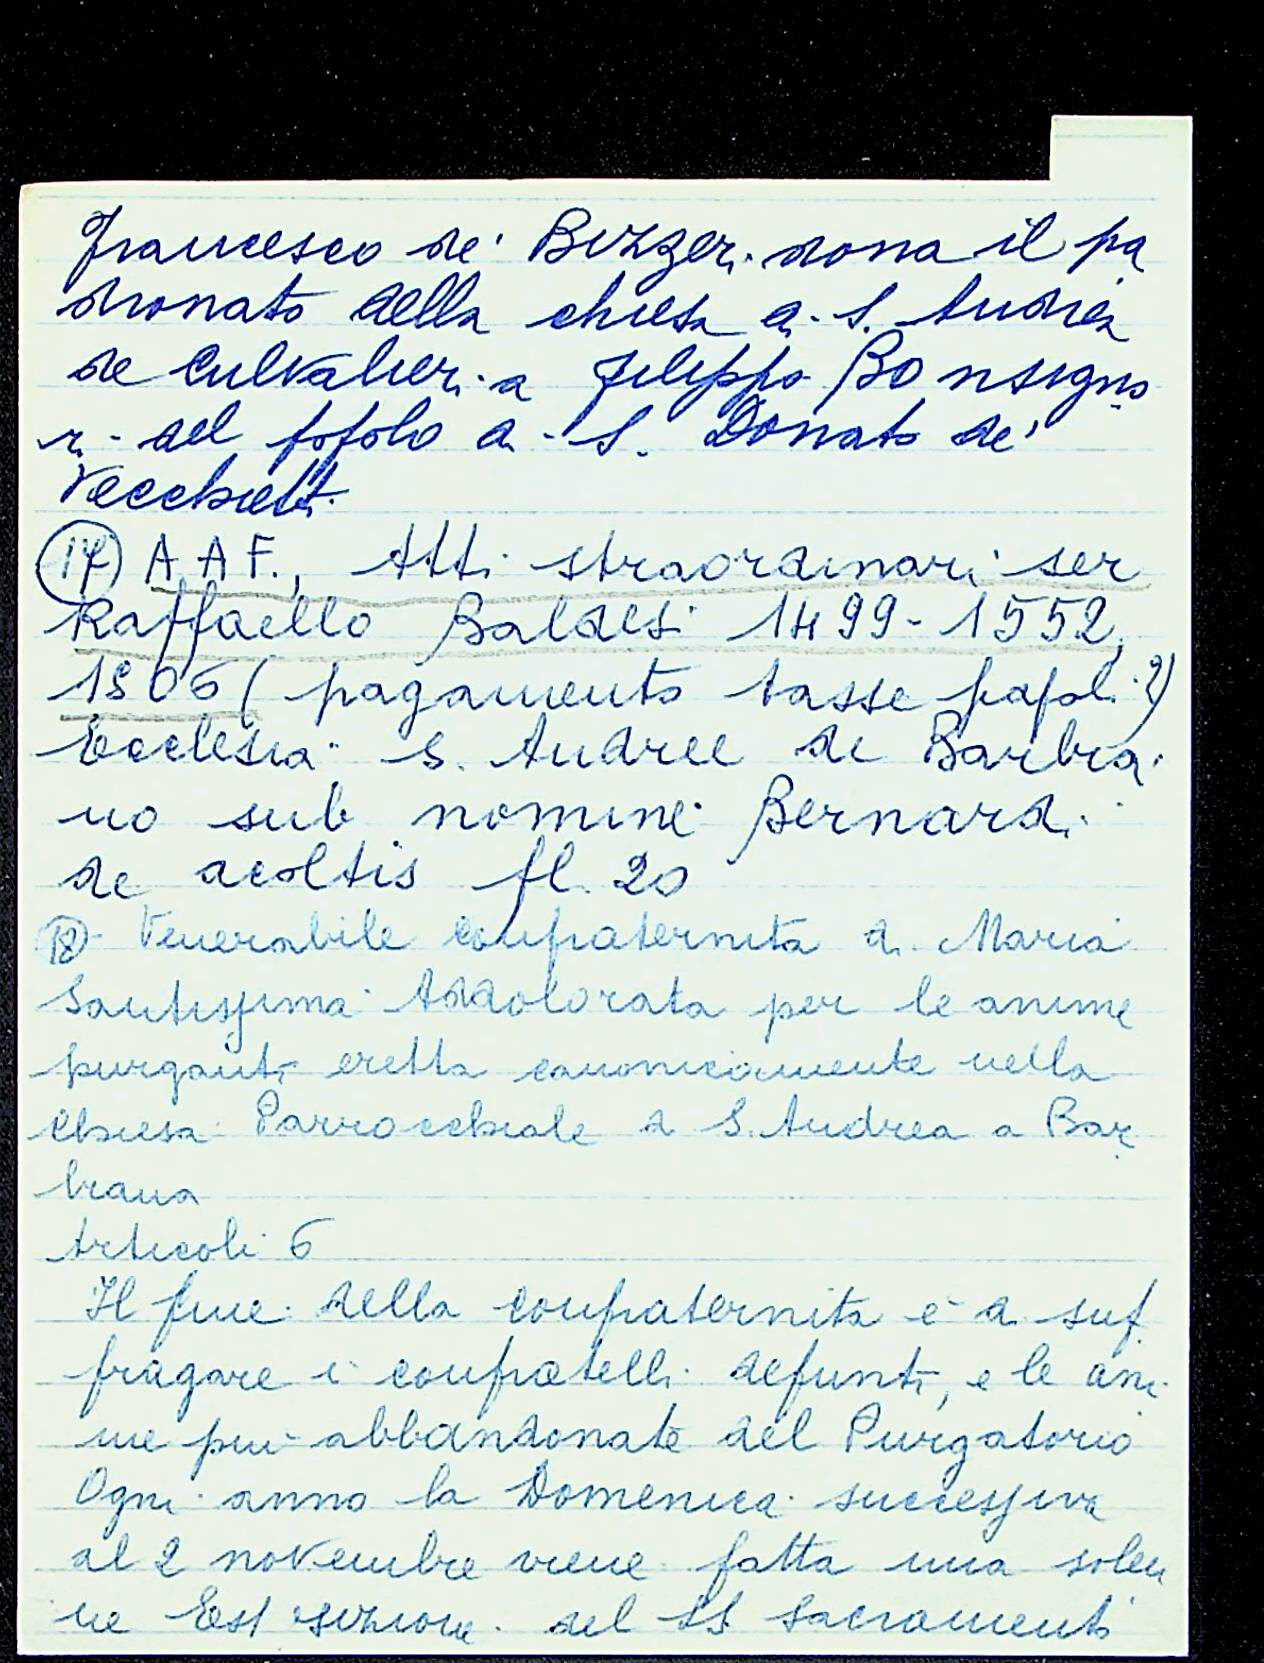 Francesco de' Bizzeri dona il pa
dronato della chiesa di S. Andrea
de Culvalieri a Filippo Bonsigno
ri del popolo di S. Donato de'
Vecchietti
(17) A A F., Atti straordinari ser
Raffaello Baldesi 1499-1552,
1506 (pagamento tasse papali?)
Ecclesia S. Andree de Barbia
no sub nomine Bernardi
de acoltis fl. 20
(18) Venerabile confraternita di Maria
Santissima Addolorata per le anime
purganti eretta canonicamente nella
chiesa Parrocchiale di S. Andrea a Bar
biana
Articoli 6
Il fine della confraternita è di suf
fragare i confratelli defunti, e le ani
me più abbandonate del Purgatorio
Ogni anno la Domenica successiva
al 2 novembre viene fatta una solen
ne Esposizione del SS Sacramento